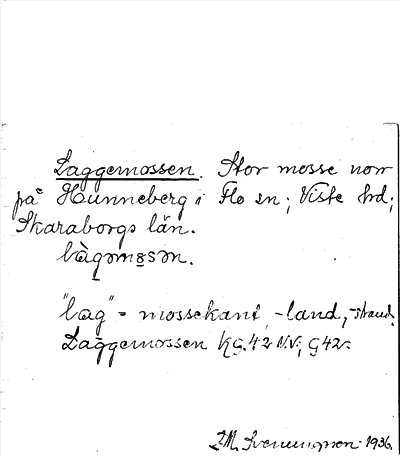 Laggemossen. Stor mosse norr
på Hunneberg i Flo sn; Viste hd;
Skaraborgs län.
làgəmɷsən.
"lag" = mossekant, -land, -strand.
Laggemossen KG. 42 NV; G 42v.
J.M. Svenungson. 1936.